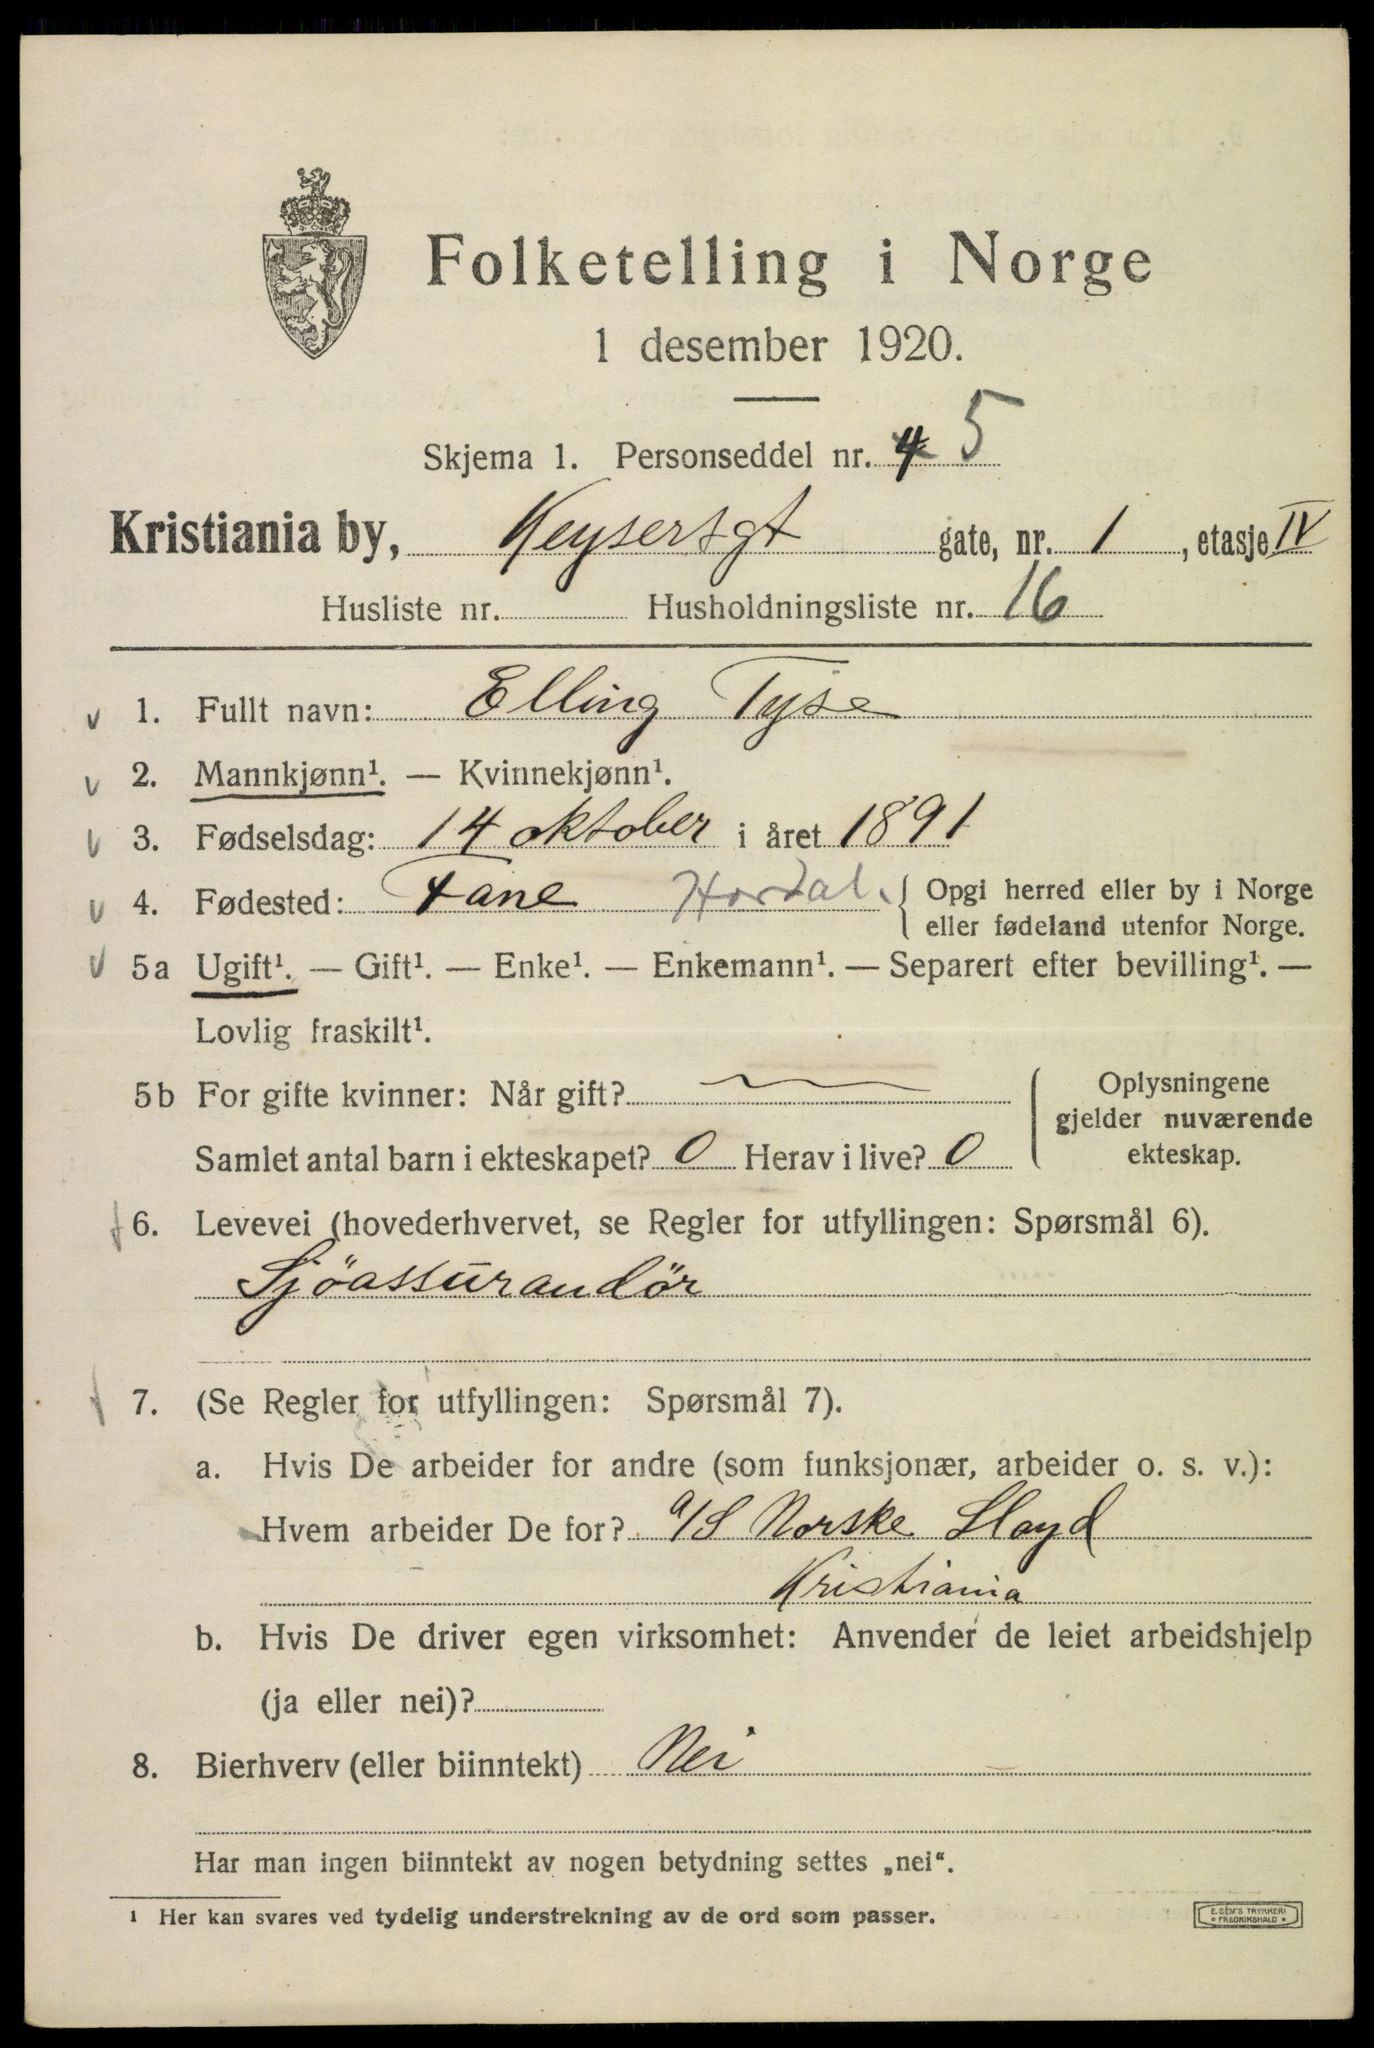 Folketelling i Norge
1 desember 1920.
Skjema 1. Personseddel nr. 4 5
Kristiania by, Keysersgt gate, nr. 1, etasje IV
Husliste nr. Husholdningsliste nr. 16
1. Fullt navn: Elling Tyse
2. Mannkjønn¹. — Kvinnekjønn¹.
3. Fødselsdag: 14 oktober i året 1891
4. Fødested: Fane Hordal. { Opgi herred eller by i Norge
eller fødeland utenfor Norge.
5a Ugift¹. — Gift¹. — Enke¹. — Enkemann¹. — Separert efter bevilling¹. —
Lovlig fraskilt¹.
5b For gifte kvinner: Når gift?
Samlet antal barn i ekteskapet? 0 Herav i live? 0
Oplysningene
gjelder nuværende
ekteskap.
6. Levevei (hovederhvervet, se Regler for utfyllingen: Spørsmål 6).
Sjöassurandör
7. (Se Regler for utfyllingen: Spørsmål 7).
a. Hvis De arbeider for andre (som funksjonær, arbeider o. s. v.):
Hvem arbeider De for? a/S Norske Lloyd
Kristiania
b. Hvis De driver egen virksomhet: Anvender de leiet arbeidshjelp
(ja eller nei)?
8. Bierhverv (eller biinntekt) Nei
Har man ingen biinntekt av nogen betydning settes „nei“.
¹ Her kan svares ved tydelig understrekning av de ord som passer.
E. SEM'S TRYKKERI
• FREDRIKSHALD •